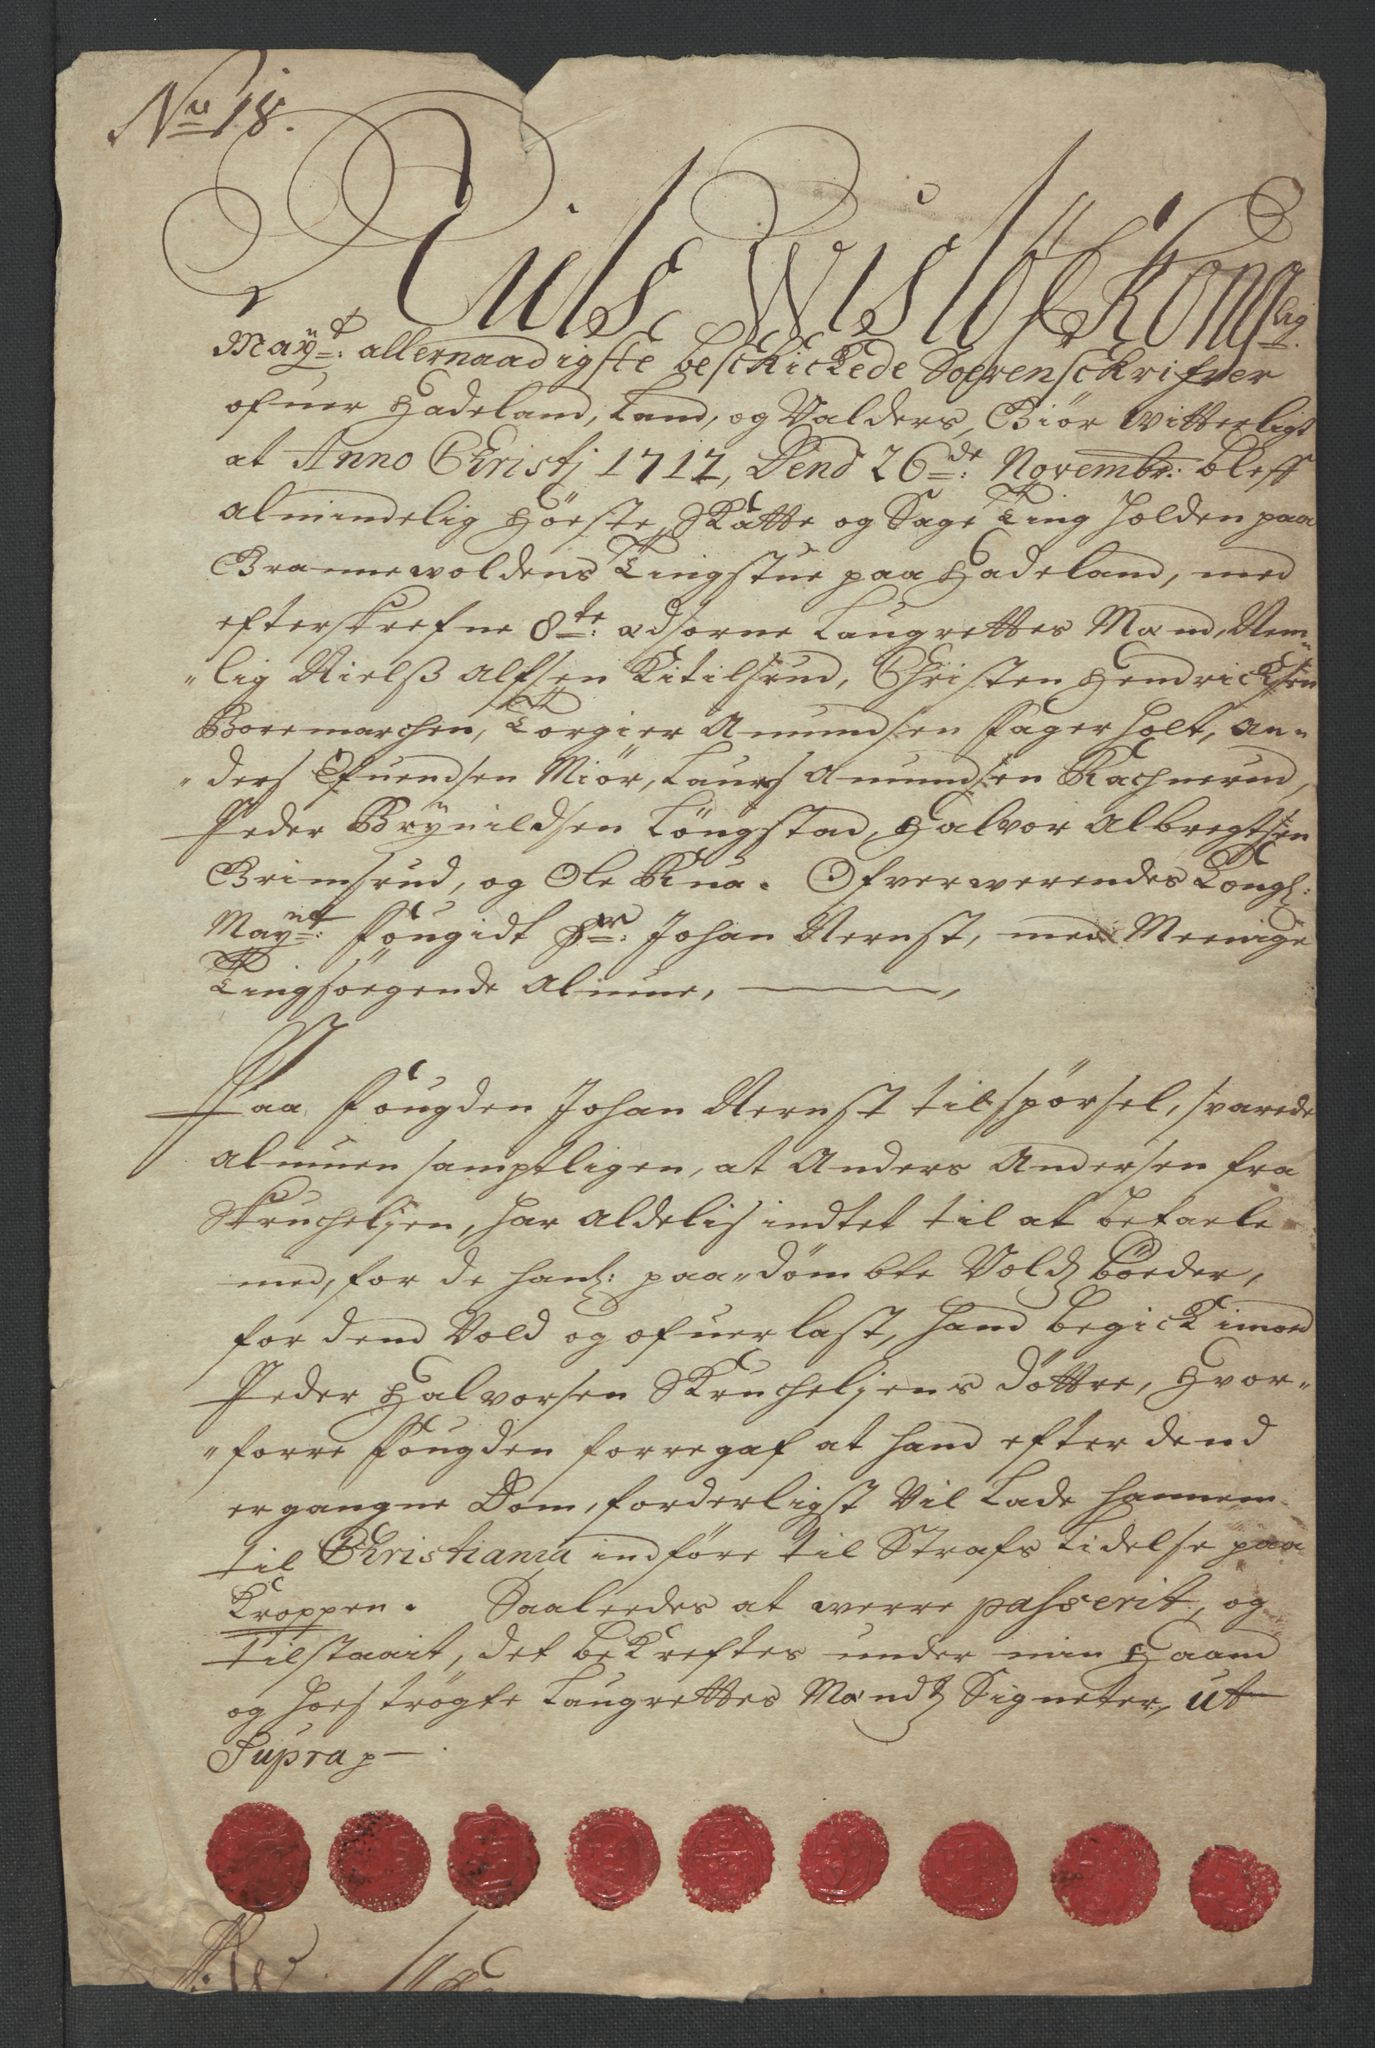 No 18.
Niels Wislöf Kong lig
Mayt: allernaadigste beschickede Soerenschrifver
ofuer Hadeland, Land, og Valders, Giör Vitterligt
at Anno Christj 1712, Dend 26de: Novembr: bleff
almindelig Höeste, Skatte og Sage Ting holden paa
Brannewoldens Tingstue paa Hadeland, med
efterskrefne 8te: Edsorne Laugrettes Mænd, Nem-
"lig Nielß Alfsen Kitilsrud, Christen Hendrichsen
Boremarchen, Torgier Amundsen Fagerholt, An-
"ders Efuendsen Miör, Laurs Amundsen Rachnerud,
Peder Brÿnildsen Löngstad, Halvor Albregtsen
Grimsrud, og Ole Rua. Ofververendes Kongl:
Maynt: Fougidt Hr: Johan Nernst, med Meenige
Tingsöegende Almue,
Paa Fougden Johan Nernst tilspörsel, svarede
Almuen samptligen, at Anders Andersen fra
Skrucheljen, har aldelis indtet til at betaele
med, for de hanß: paa-dömbte Voldß böeder,
for dend Vold og ofuerlast, hand begick imod
Peder Halvorsen Skrucheljens döttre, Hvor-
"forre Fougden forregaf at hand efter dend
ergangne Dom, forderligst Vil Lade hannem
til Christiania indföre til Strafs Lidelse paa
Kroppen. Saaleedes at werre passerit, og
tilstaait, det bekreftes under min Haand
og hoeströgte Laugrettes Mændß Signeter, ut
Supra p